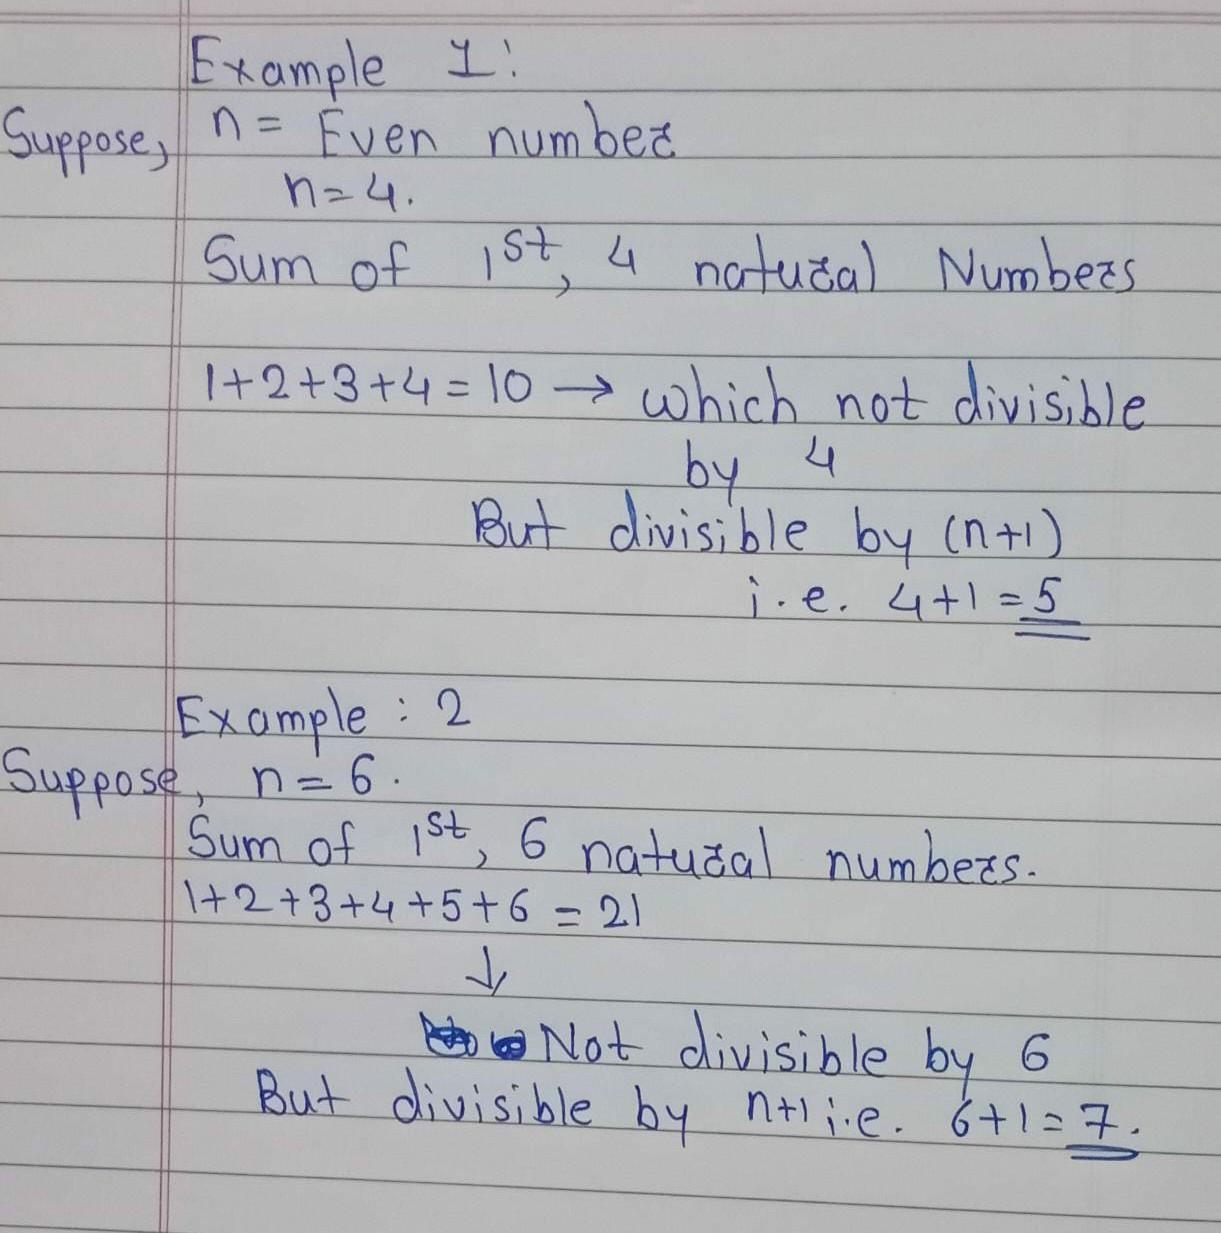 Example 1:
Suppose, n = Even number
n=4.
Sum of 1st, 4 natural Numbers
1+2+3+4=10 → which not divisible
by 4
But divisible by (n+1)
i.e. 4+1=5
Example : 2
Suppose, n=6.
Sum of 1st, 6 natural numbers.
1+2+3+4+5+6=21
↓
Not divisible by 6
But divisible by n+1 i.e. 6+1=7.